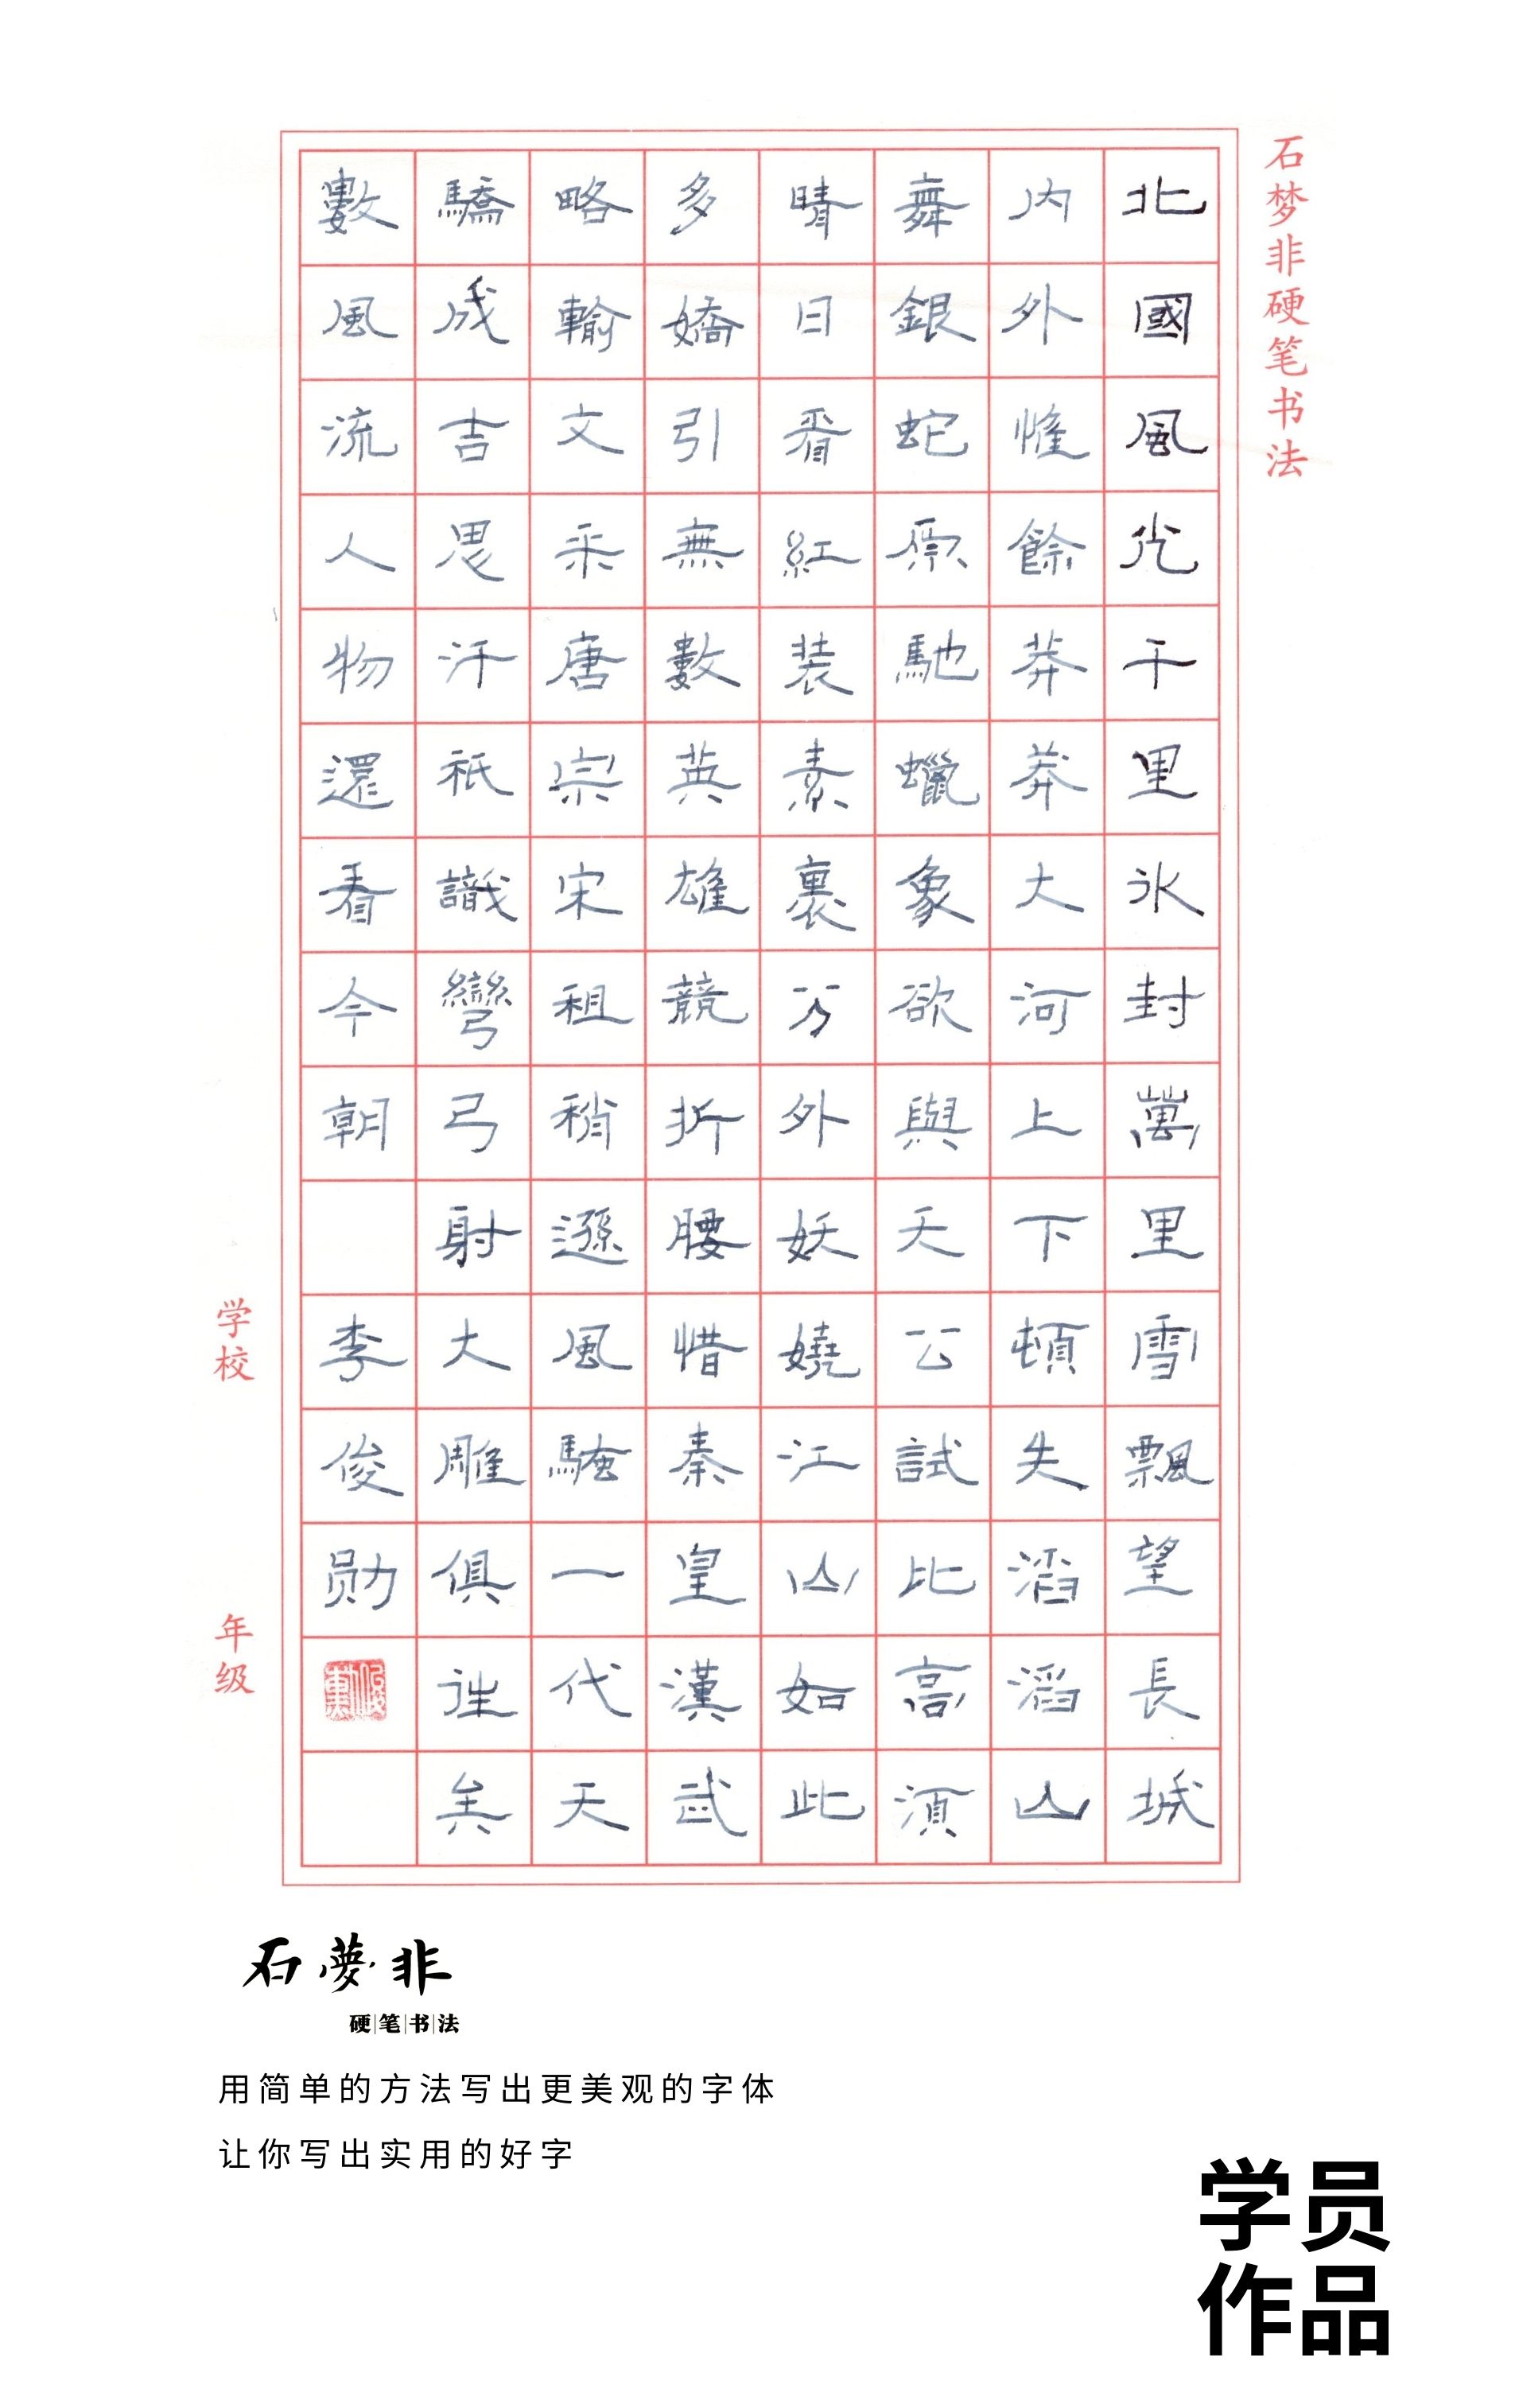 石梦非硬笔书法
北國風光千里冰封萬里雪飄望長城
内外惟餘莽莽大河上下頓失滔滔山
舞銀蛇原馳蠟象欲與天公試比高須
晴日看紅装素裹分外妖嬈江山如此
多嬌引無數英雄競折腰惜秦皇漢武
略輸文采唐宗宋祖稍遜風騷一代天
驕成吉思汗祇識彎弓射大雕俱往矣
數風流人物還看今朝 李俊勋
学校 年级
石夢非
硬笔书法
用简单的方法写出更美观的字体
让你写出实用的好字
学员
作品